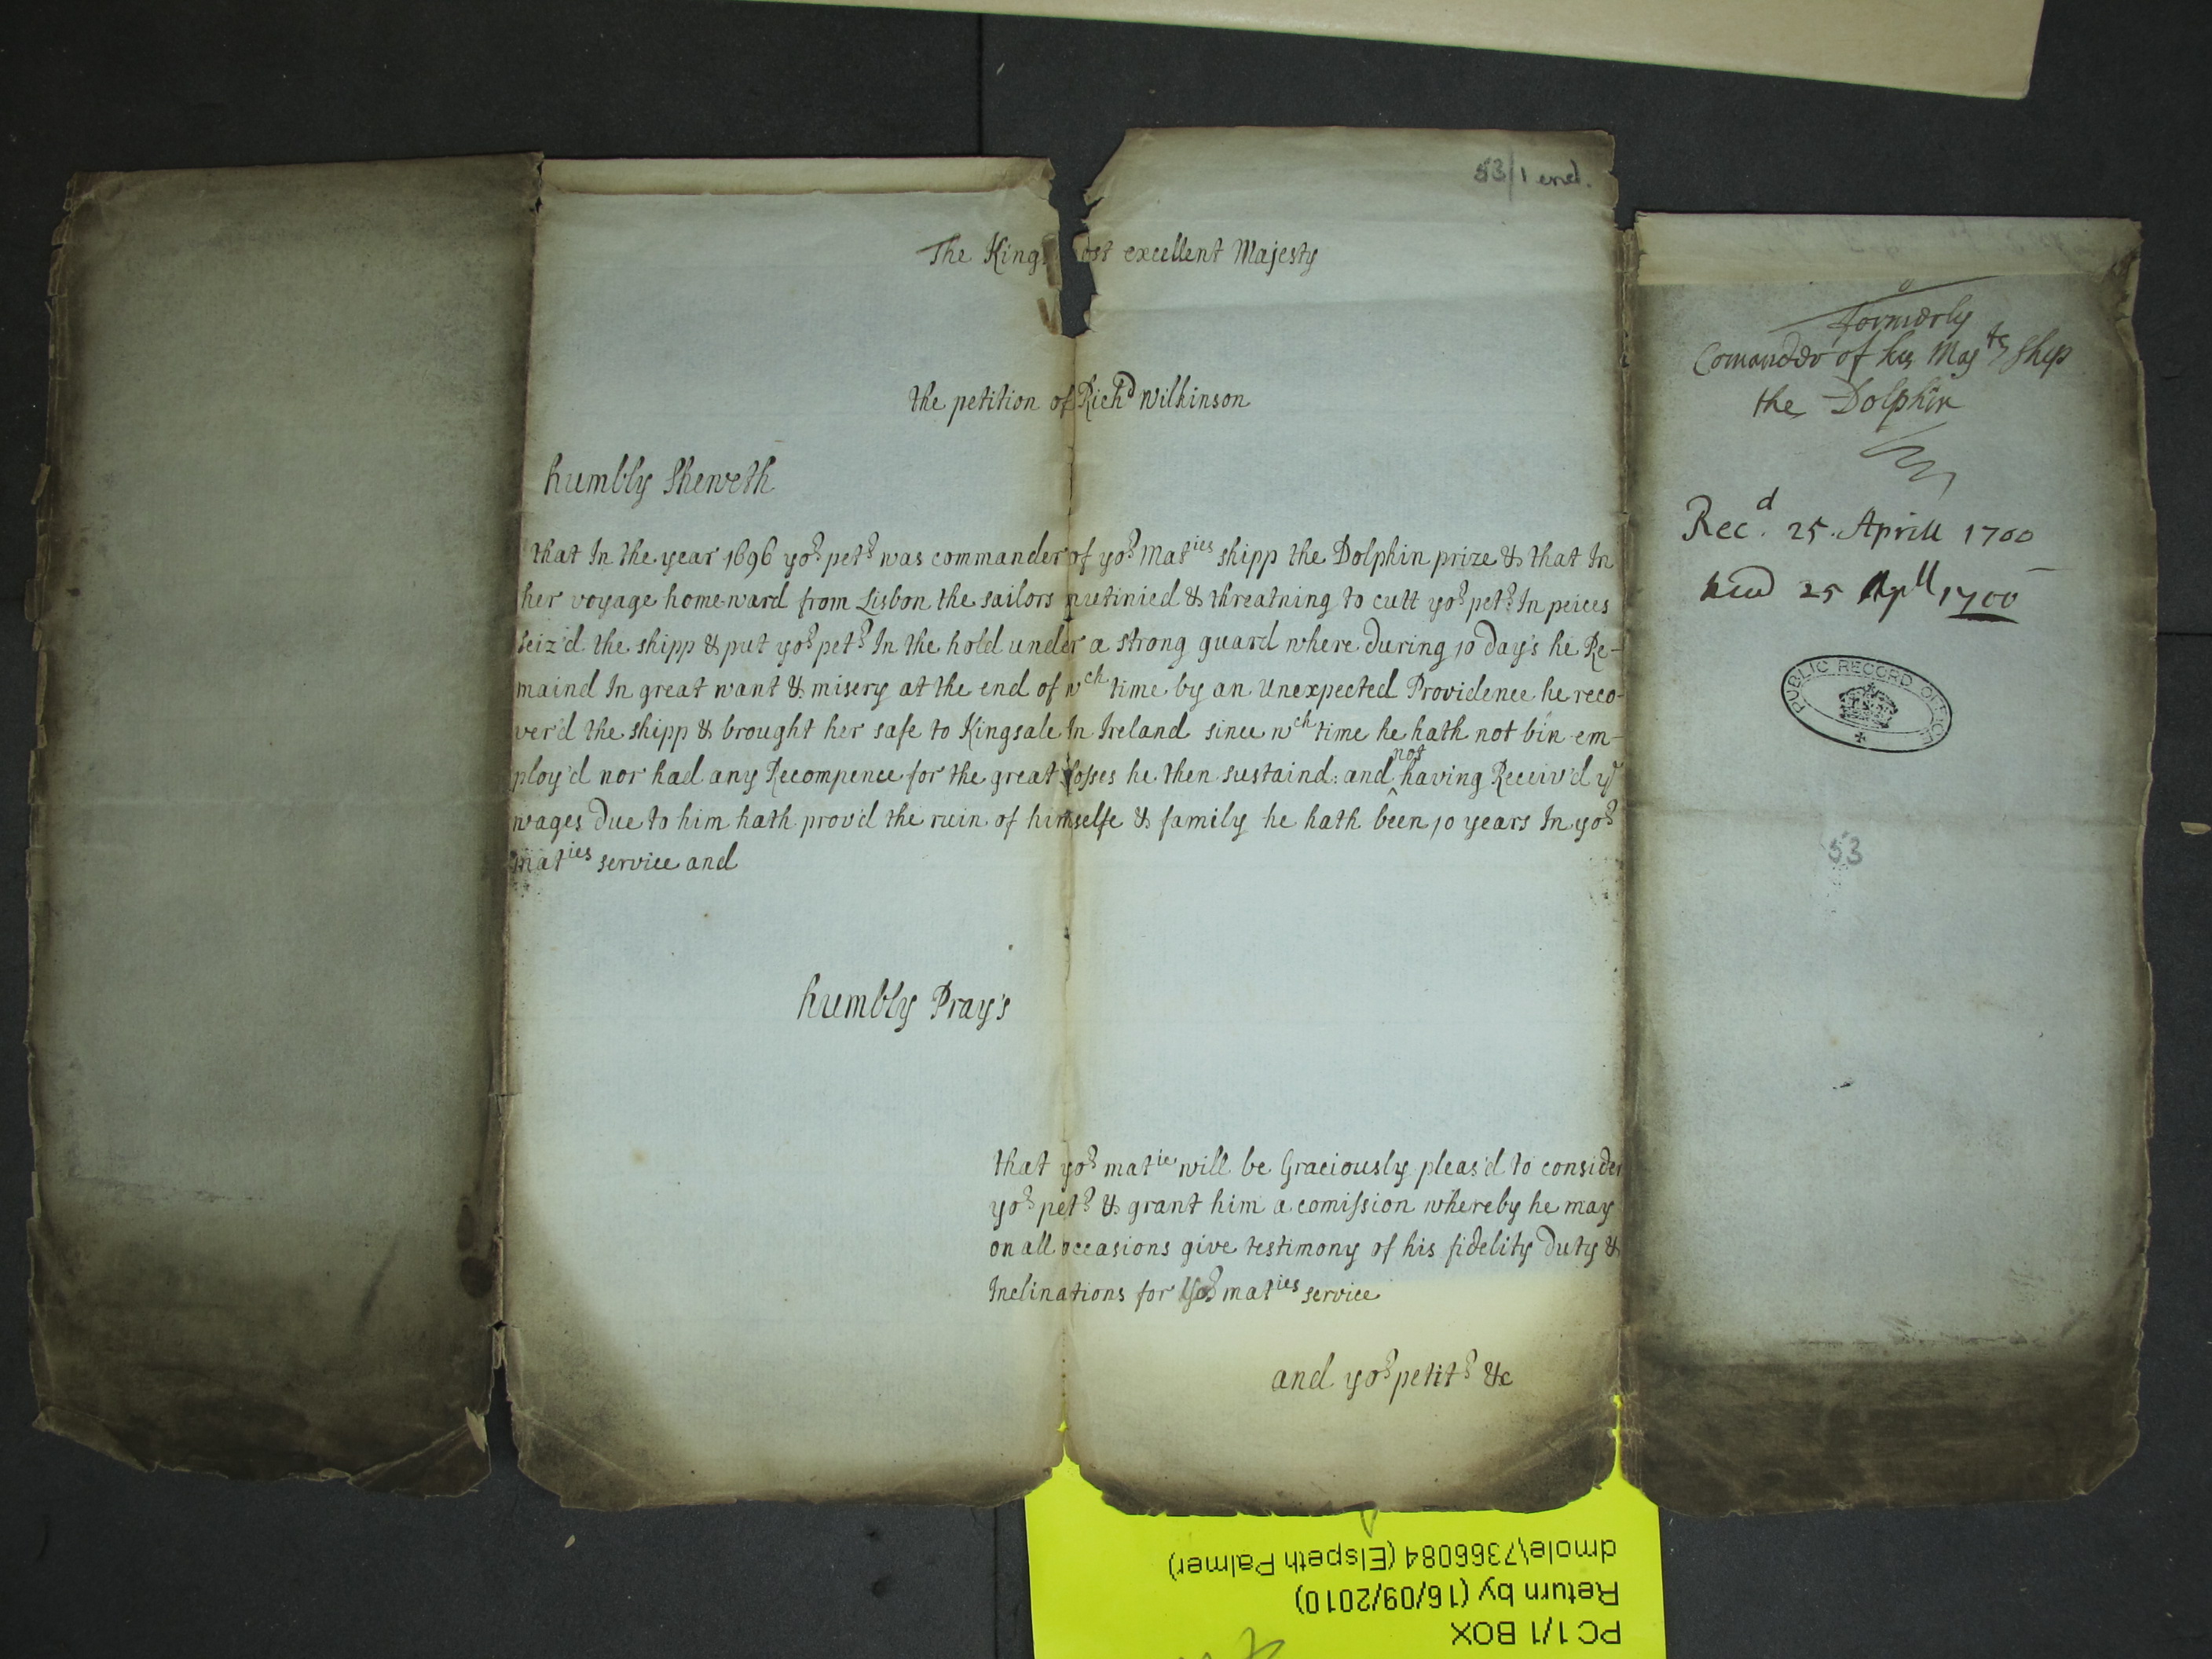 53/1 encl.
The Kings ost excellent Majesty
the petition of Richd Wilkinson
humbly Sheweth
that In the year 1696 yor petr was commander of yor Maties shipp the Dolphin prize & that In
her voyage homeward from Lisbon the sailors mutinied & threatning to cutt yor petr In peices
seiz'd the shipp & put yor petr In the hold under a strong guard where during 10 day's he Re-
maind In great want & misery at the end of wch time by an Unexpected Providence he reco-
ver'd the shipp & brought her safe to Kingsale In Ireland since wch time he hath not bin em-
ploy'd nor had any Recompence for the great losses he then sustaind: and not having Receiv'd ye
wages due to him hath prov'd the ruin of himselfe & family he hath been 10 years In yor
maties service and
humbly Pray's
that yor matie will be Graciously pleas'd to consider
yor petr & grant him a comission whereby he may
on all occasions give testimony of his fidelity duty &
Inclinations for Yor maties service
and yor petitr &c
formerly
Comander of his Majts Ship
the Dolphin
Recd. 25. Aprill 1700
25 Apll 1700
PUBLIC RECORD OFFICE
53
PC 1/1 BOX
Return by (16/09/2010)
dmole\7366084 (Elspeth Palmer)